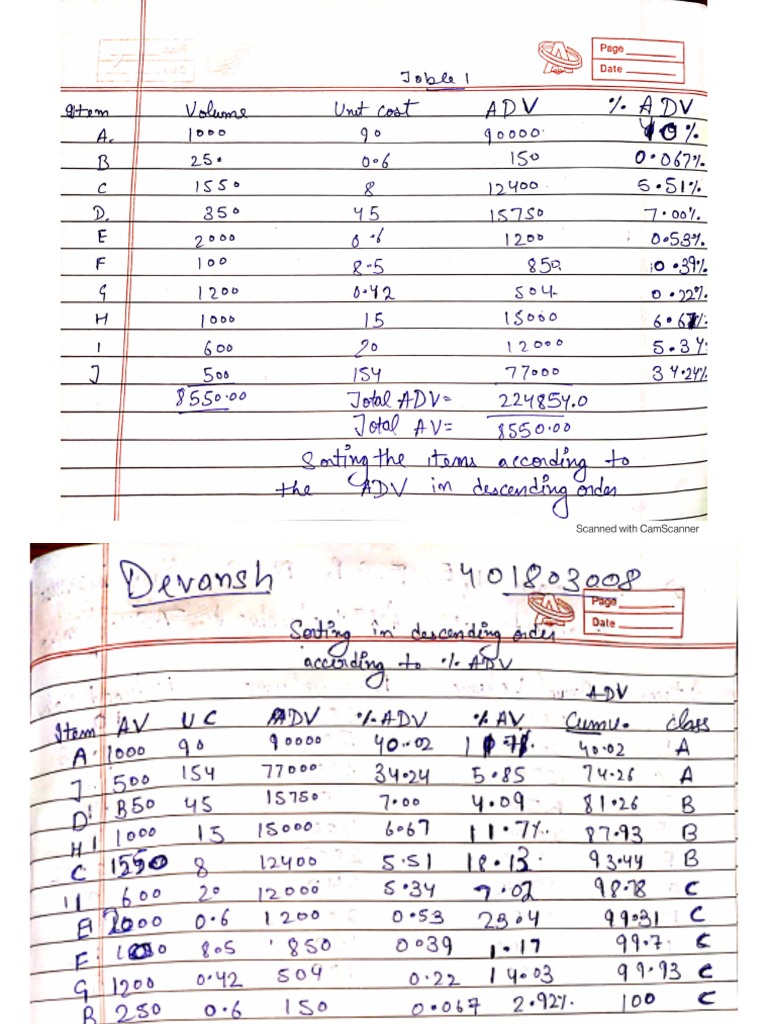 Page
Date
Table 1
Item Volume Unit cost ADV % ADV
A. 1000 90 90000. 40%
B 250 0.6 150 0.067%
C 1550 8 12400 5.51%
D. 350 45 15750 7.00%
E 2000 0.6 1200 0.53%
F 100 8.5 850. 0.39%
G 1200 0.42 504. 0.22%
H 1000 15 15000 6.67%
I 600 20 12000 5.34
J 500 154 77000 34.24%
8550.00 Total ADV= 224854.0
Total AV= 8550.00
Sorting the items according to
the ADV in descending order
Scanned with CamScanner
Devansh 401803008
Page
Date
Sorting in descending order
according to % ADV
ADV
Item AV UC ADV % ADV % AV Cumv. class
A 1000 90 90000 40.02 40.02 A
J 500 154 77000 34.24 5.85 74.26 A
D 350 45 15750 7.00 4.09 81.26 B
H 1000 15 15000 6.67 11.7% 87.93 B
C 1550 8 12400 5.51 18.13 93.44 B
I 600 20 12000 5.34 7.02 98.78 C
E 2000 0.6 1200 0.53 23.4 99.31 C
F 100 8.5 850 0.39 1.17 99.7 C
G 1200 0.42 504 0.22 14.03 99.93 C
B 250 0.6 150 0.067 2.92% 100 C